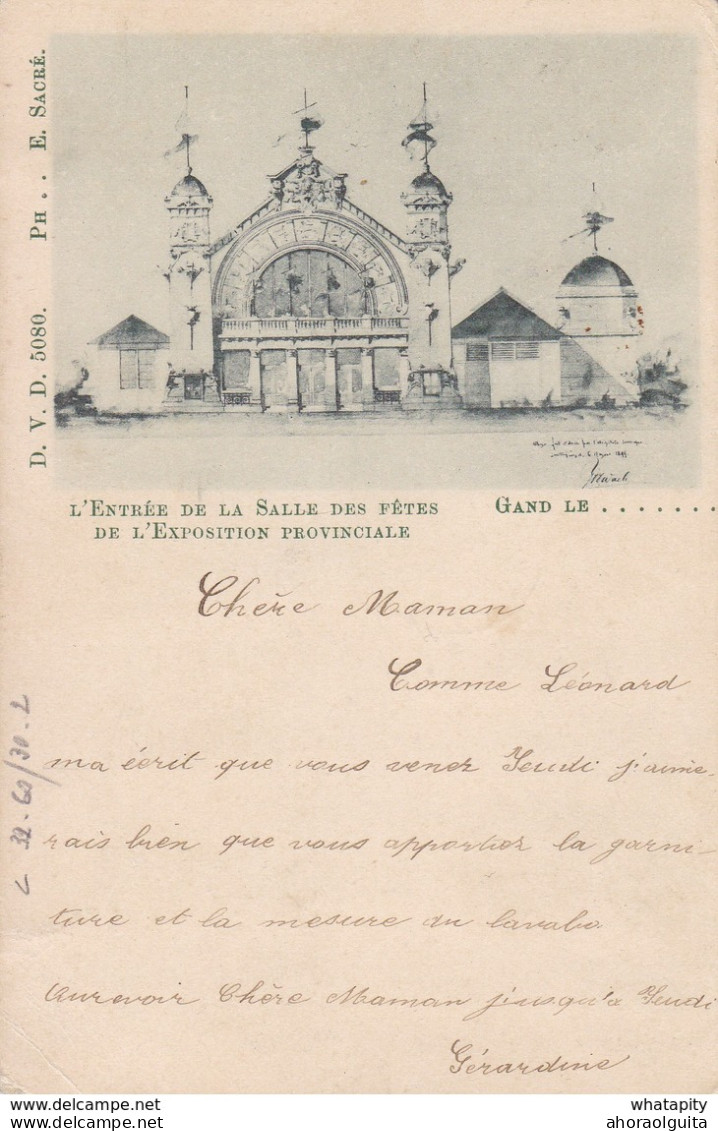 D. V. D. 5080. PH . . E. SACRÉ.
L'ENTRÉE DE LA SALLE DES FÊTES
DE L'EXPOSITION PROVINCIALE
GAND LE . . . . . . .
Chère Maman
Comme Léonard
ma écrit que vous venez Jeudi j'aime-
rais bien que vous apportiez la garni-
ture et la mesure du lavabo.
Aurevoir Chère Maman jusqu'a Jeudi
Gérardine
L 32-60/30-2
https://www.delcampe.net
whatapity
ahoraolguita